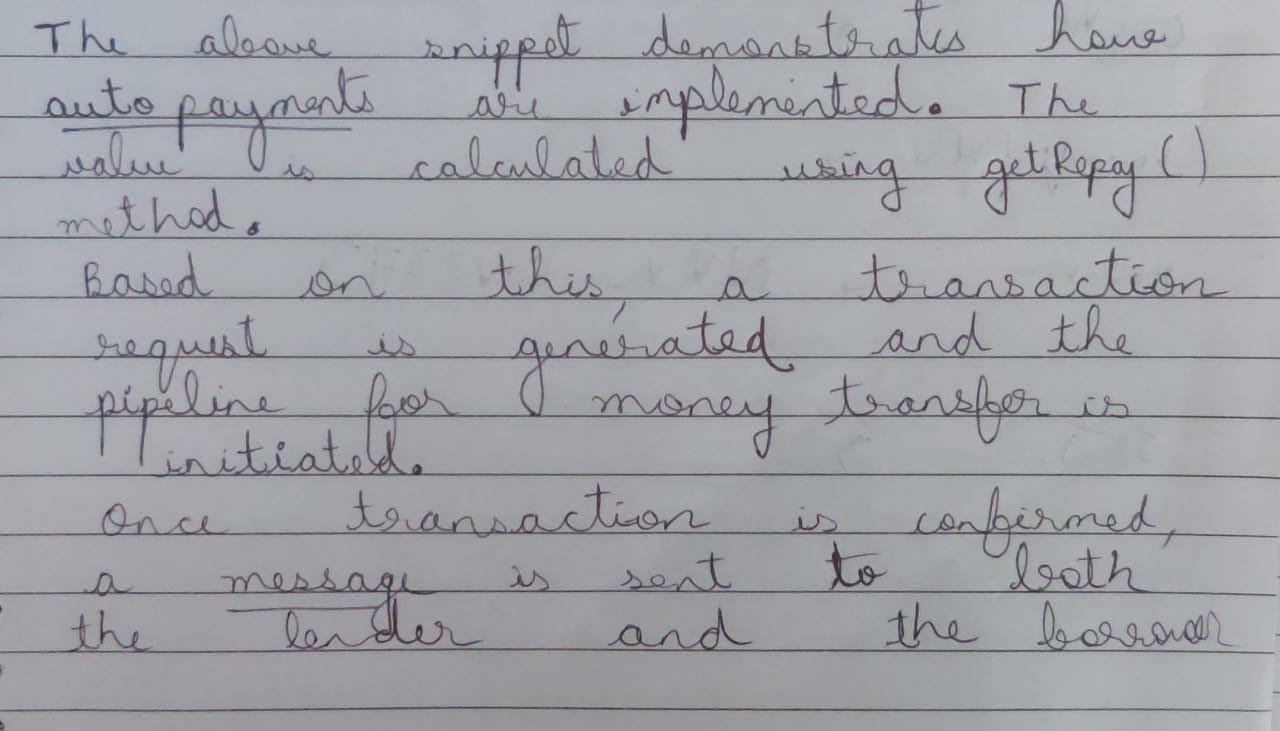 The above snippet demonstrates how
auto payments are implemented. The
value is calculated using getRepay()
method.
Based on this, a transaction
request is generated and the
pipeline for money transfer is
initiated.
Once transaction is confirmed,
a message is sent to both
the lender and the borrower